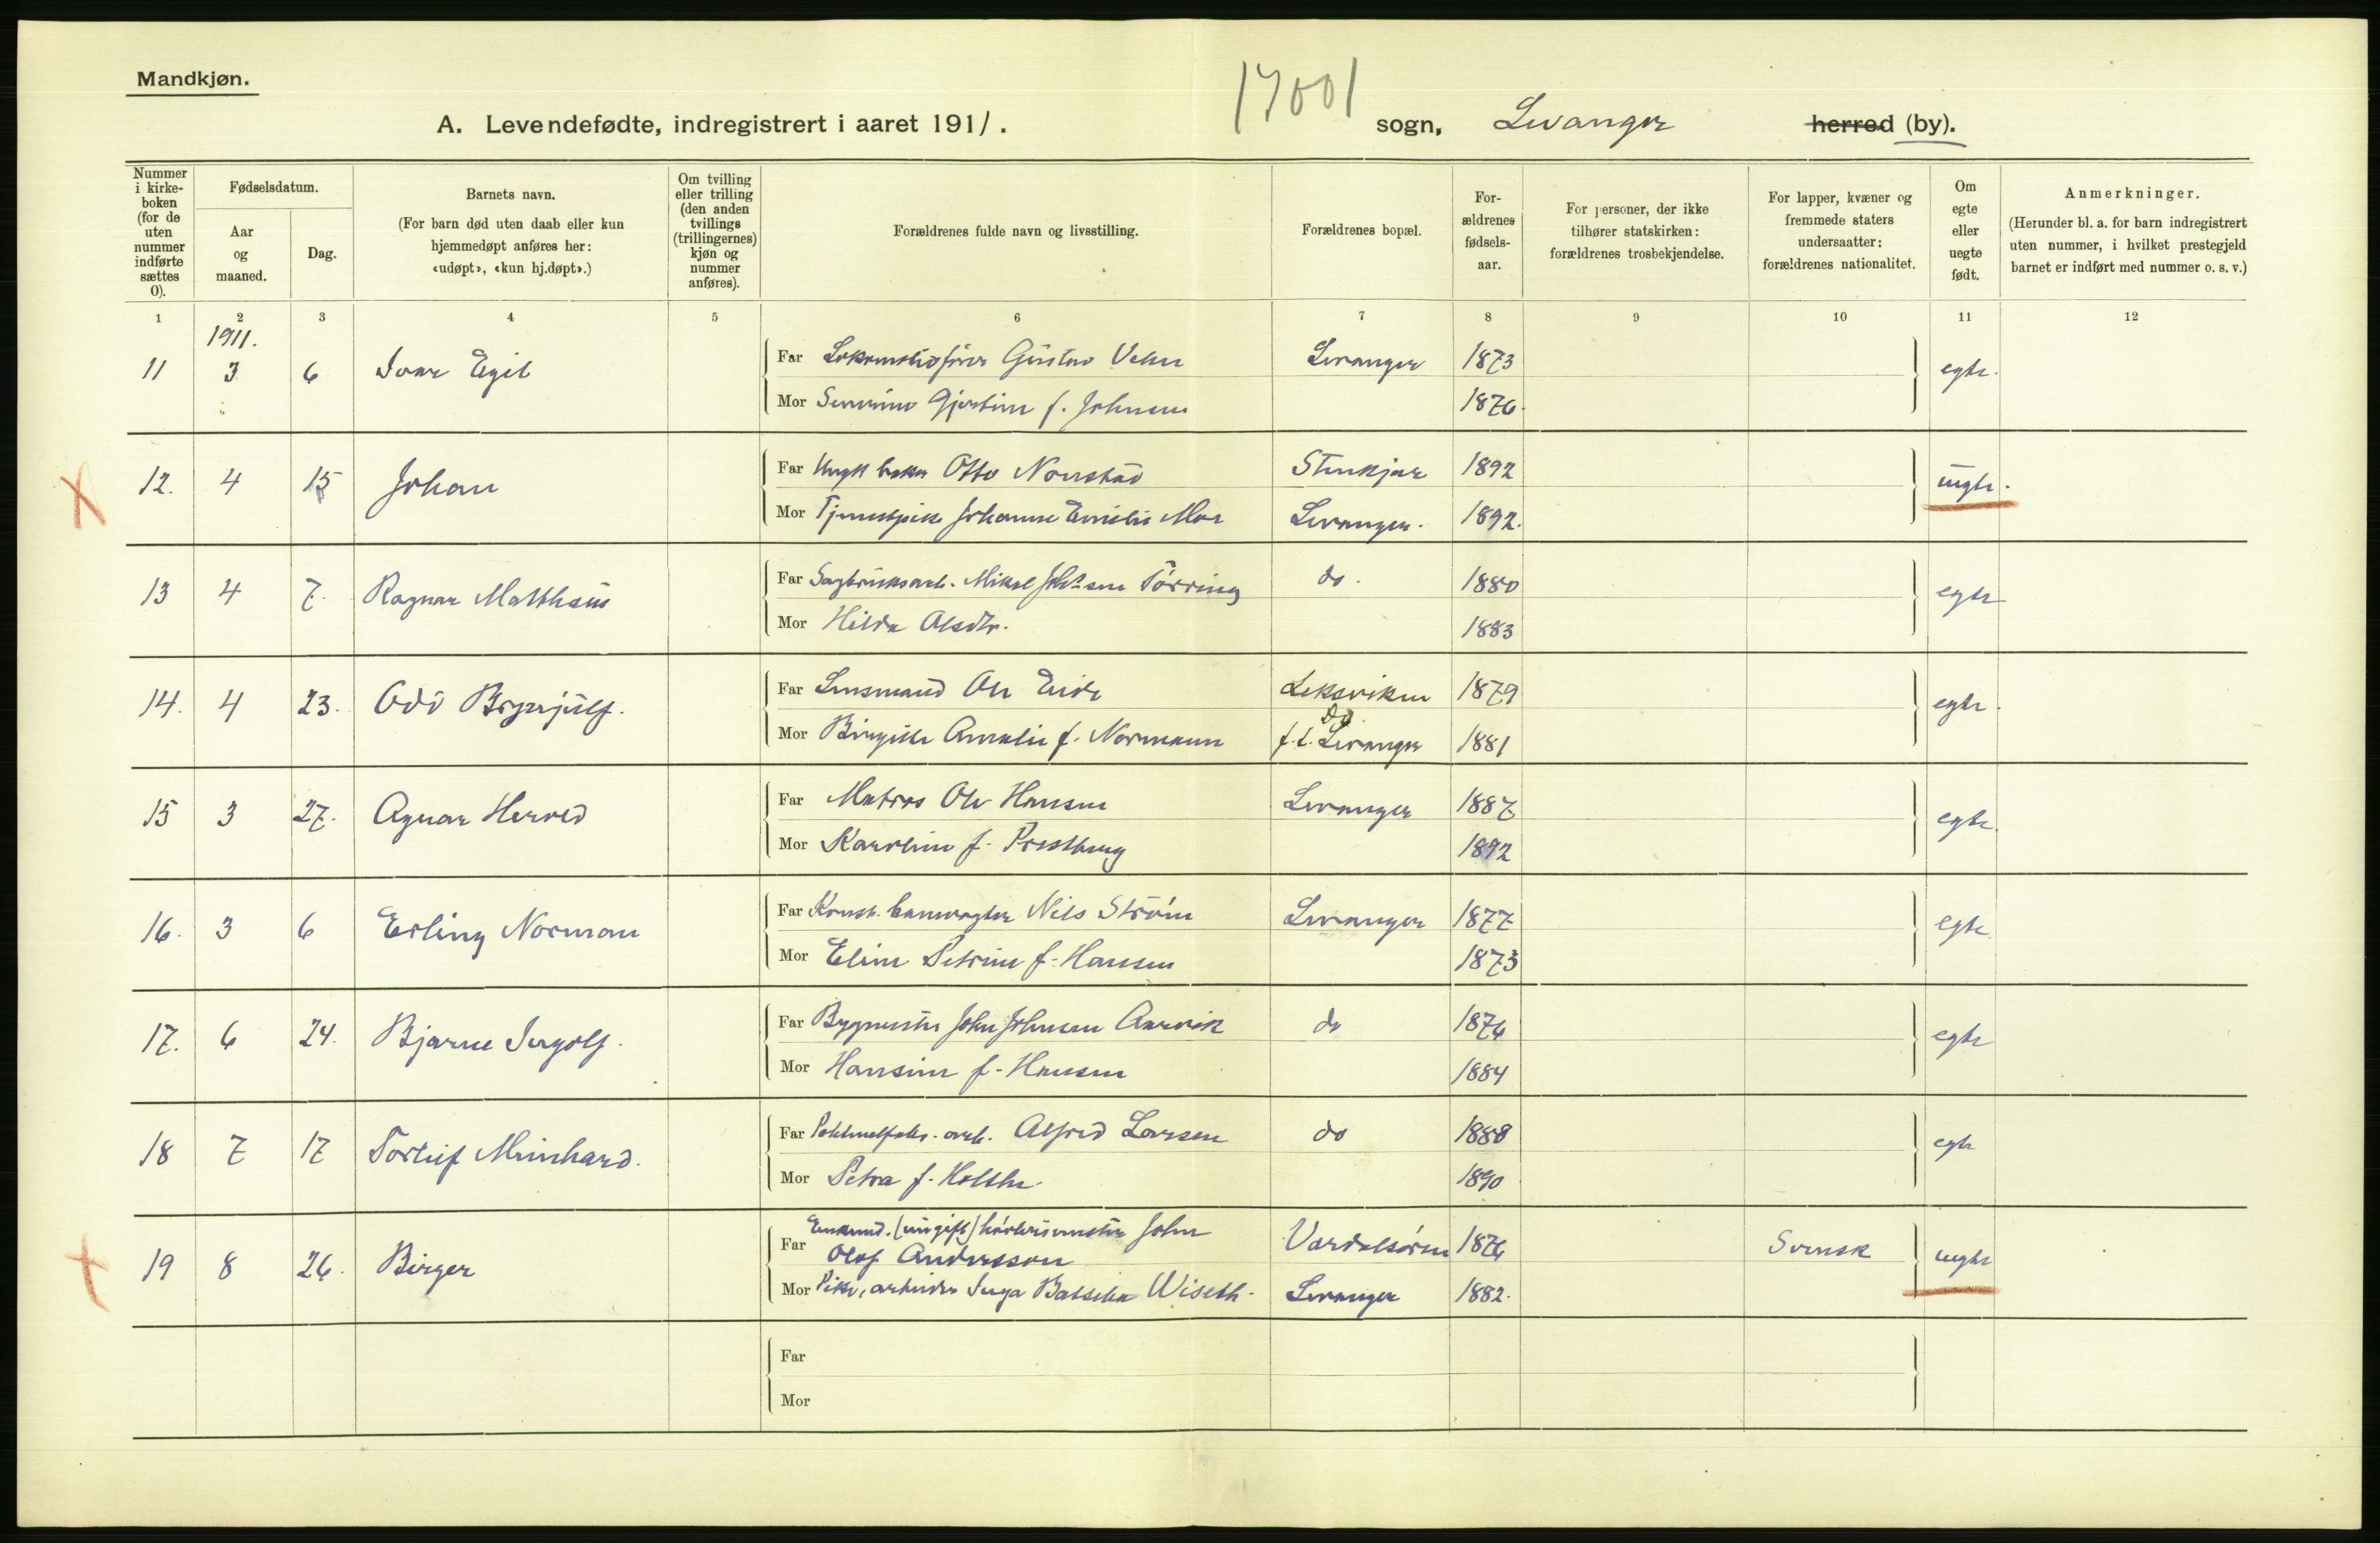 Mandkjøn.
17001
A. Levendefødte, indregistrert i aaret 1911. sogn, Levanger herred (by).
Nummer i kirke-boken (for de uten nummer indførte sættes 0).
Fødselsdatum.
Aar og maaned.
Dag.
Barnets navn.
(For barn død uten daab eller kun hjemmedøpt anføres her: «udøpt», «kun hj.døpt».)
Om tvilling eller trilling (den anden tvillings (trillingernes) kjøn og nummer anføres).
Forældrenes fulde navn og livsstilling.
Forældrenes bopæl.
For-ældrenes fødsels-aar.
For personer, der ikke tilhører statskirken: forældrenes trosbekjendelse.
For lapper, kvæner og fremmede staters undersaatter: forældrenes nationalitet.
Om egte eller uegte født.
Anmerkninger.
(Herunder bl. a. for barn indregistrert uten nummer, i hvilket prestegjeld barnet er indført med nummer o. s. v.)
1 2 3 4 5 6 7 8 9 10 11 12
1911.
11 3 6 Ivar Egil Far Lokomotivfører Gustav Levanger 1873 egte.
Mor Severine Gjertine f. Johnsen 1876.
12. 4 15 Johan Far Ungk. baker Otto Stenkjær 1892 uegte.
Mor Tjenestepike Johanne Emelie Moe Levanger. 1892.
13 4 7. Ragnar Matthæus Far Sagbruksarb. Mikal Tørring do. 1880 egte
Mor Hilda Olsdtr. 1883
14. 4 23. Odd Brynjulf. Far Lensmand Ole Eide Leksviken 1879 egte.
Mor Birgitte Amalie f. Normann do. f. t. Levanger 1881
15 3 27. Agnar Herold Far Matros Ole Hansen Levanger 1887 egte.
Mor Karoline f. 1892
16. 3 6 Erling Norman Far Konst. banevogter Nils Strøm Levanger 1877 egte.
Mor Eline Petrine f. Hansen 1873
17. 6 24. Bjarne Ingolf. Far Bygmester John Johnsen Aarvik do 1876 egte
Mor Hansine f. Hansen 1884
18 7 17 Torleif Meinhard. Far arb. Alfred Larsen do 1888 egte
Mor Petra f. Holthe 1890
19 8 26. Birger Far Enkemd. (ungift) John Olof Andersson Værdalsøren 1876 Svensk uegte
Mor Pike, arbeider Inga Wiseth. Levanger 1882.
Far
Mor